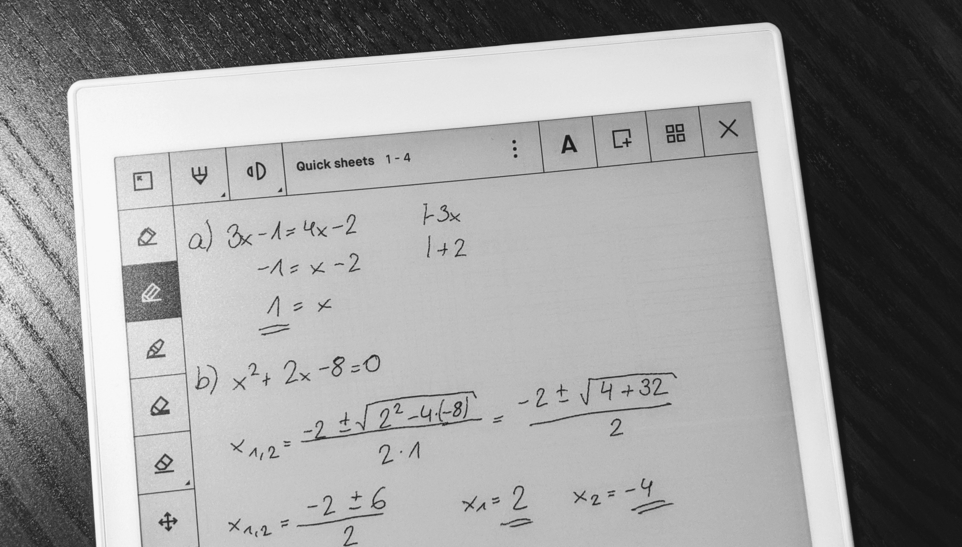 Quick sheets 1 - 4
A
a) 3x-1=4x-2 |-3x
-1=x-2 |+2
1=x
b) x²+2x-8=0
x₁,₂= (-2±√(2²-4·(-8)))/(2·1) = (-2±√(4+32))/2
x₁,₂= (-2±6)/2 x₁=2 x₂=-4